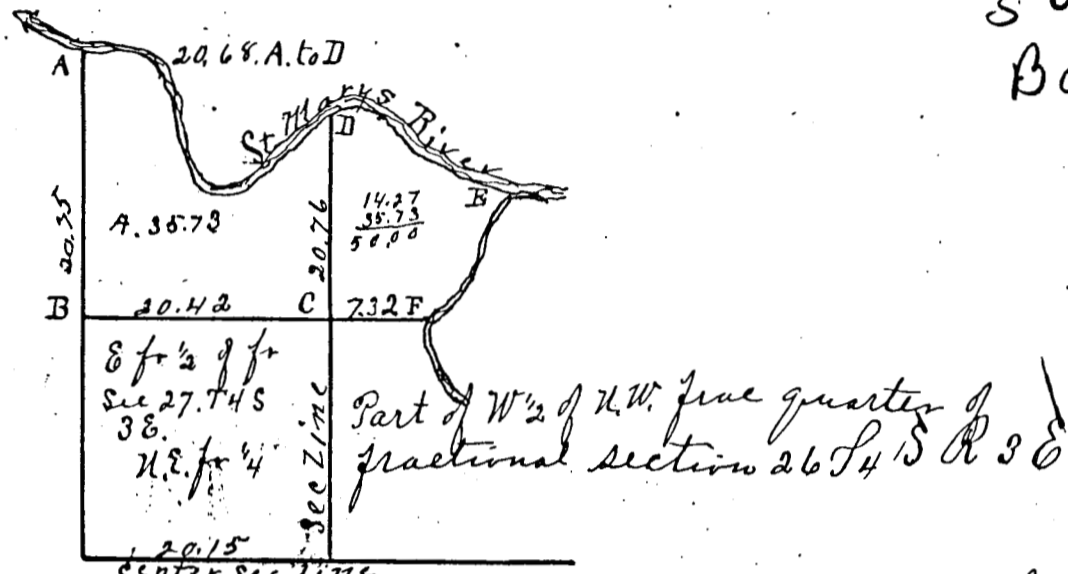 20.68. A. to D
A
St Marys River
D
E
20.35
A. 35.73
20.76
14.27
35.73
50.00
B
20.42
C
7.32
F
E fr ½ of fr
Sec 27. T 4 S
3 E.
N.E. fr ¼
Sec Line
Part of W ½ of N.W. frac quarter of
fractional section 26 T 4 S R 3 E
20.15
center sec line